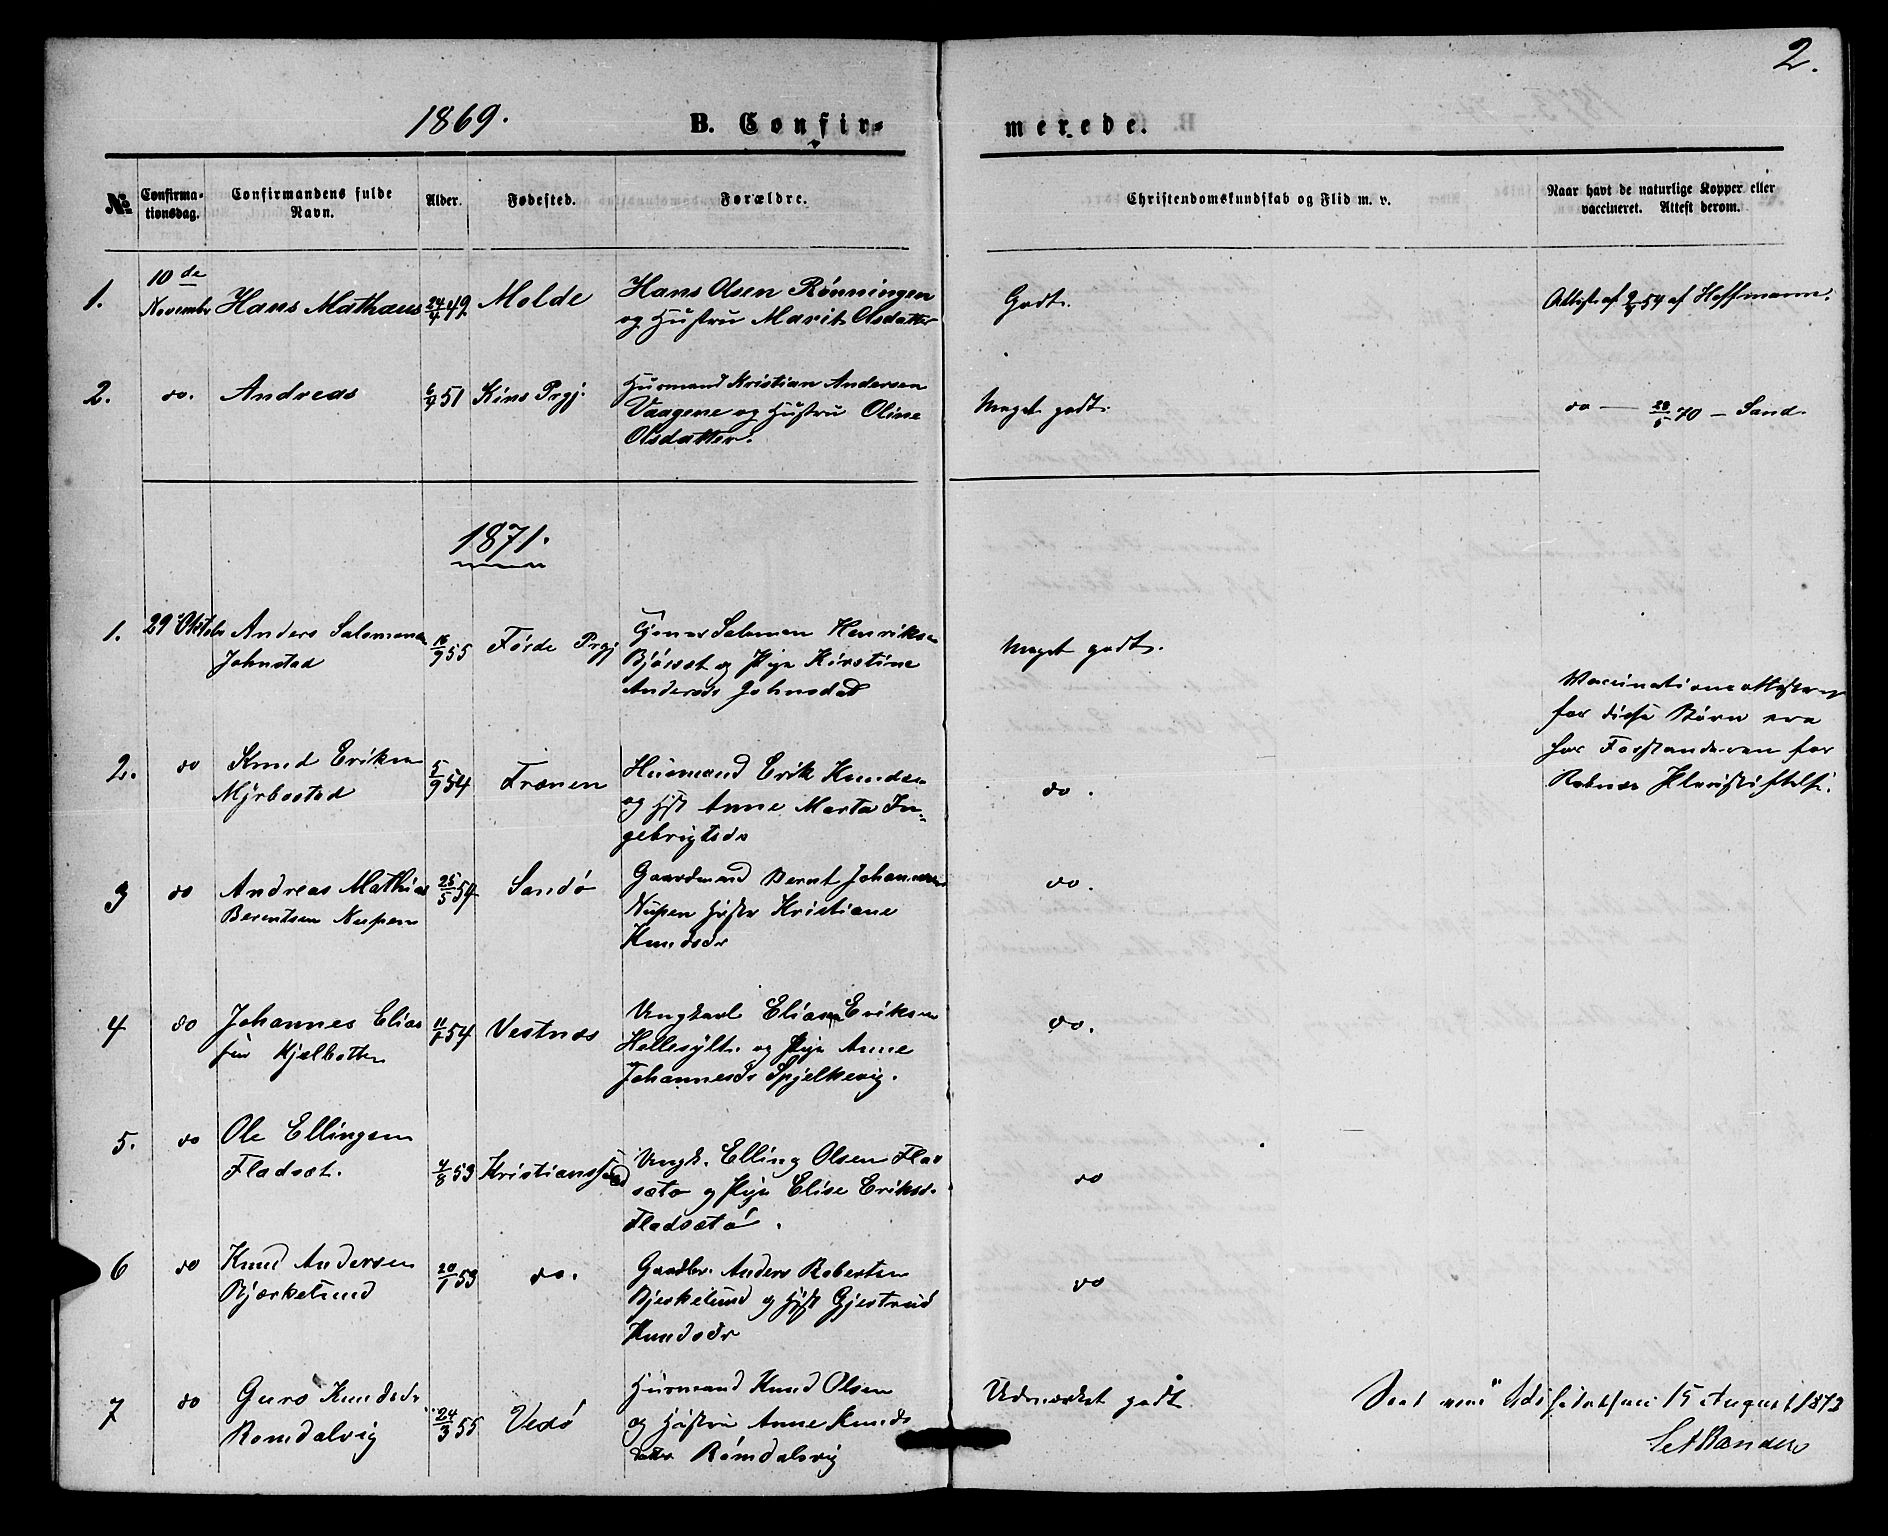 2.
1869.
B. Confir-
merede.
No
Confirma-
tionsdag.
Confirmandens fulde
Navn.
Alder.
Fødested.
Forældre.
Christendomskundskab og Flid m. v.
Naar havt de naturlige Kopper eller
vaccineret. Attest derom.
1. 10de November Hans Mathæus 24/4 49 Molde
Hans Olsen Rønningen
og Hustru Marit Olsdatter
Godt.
Attest af 9/8 54 af Hoffmann.
2. do. Andreas 6/9 51 Kins Prgj.
Husmand Kristian Andersen
Vaagene og Hustru Oline
Olsdatter.
Meget godt.
do — 28/5 70 — Sand.
1871.
1. 29 Oktobr Anders Salomons
Johnstad
16/9 55 Førde Prgj
Salomon Henriksen
og Pige Kirstine
Andersdr Johnsdal
Meget godt.
Vaccinationsattester
for disse Børn ere
hos Forstanderen for
Reknæs Pleiestiftelse.
2. do Knud Eriksen
Myrbostad
5/9 54 Frænen
Husmand Erik Knudsen
og Hst Anne Marta In-
gebrigtsdr
do.
3 do Andreas Mathias
Berentsen Nupen
25/5 54 Sandø
Gaardmand Bernt Johannesen
Nupen Hustr Kristiane
Knudsdr
do.
4 do Johannes Elias
sen Kjelbotten
54 Vestnæs
Ungkarl Elias Eriksen
Hellesylt og Pige Anne
Johannesdr Spjelkevig.
do.
5. do Ole Ellingsen
Fladsæt.
4/8 53 Kristianssund
Ungk. Elling Olsen Flad
sætø og Pige Elise Eriksd.
Fladsætø.
do
6 do Knud Andersen
Bjerkelund
20/1 53 do.
Gaardbr. Anders Robertsen
Bjerkelund og Hst Gjertrud
Knudsdr
do
7 do Guro Knudsdr
Romdalvig
24/3 55 Vedø
Husmand Knud Olsen
og Hustru Anne Knuds
datter Rømdalsvig
Udmærket godt
15 August 1873